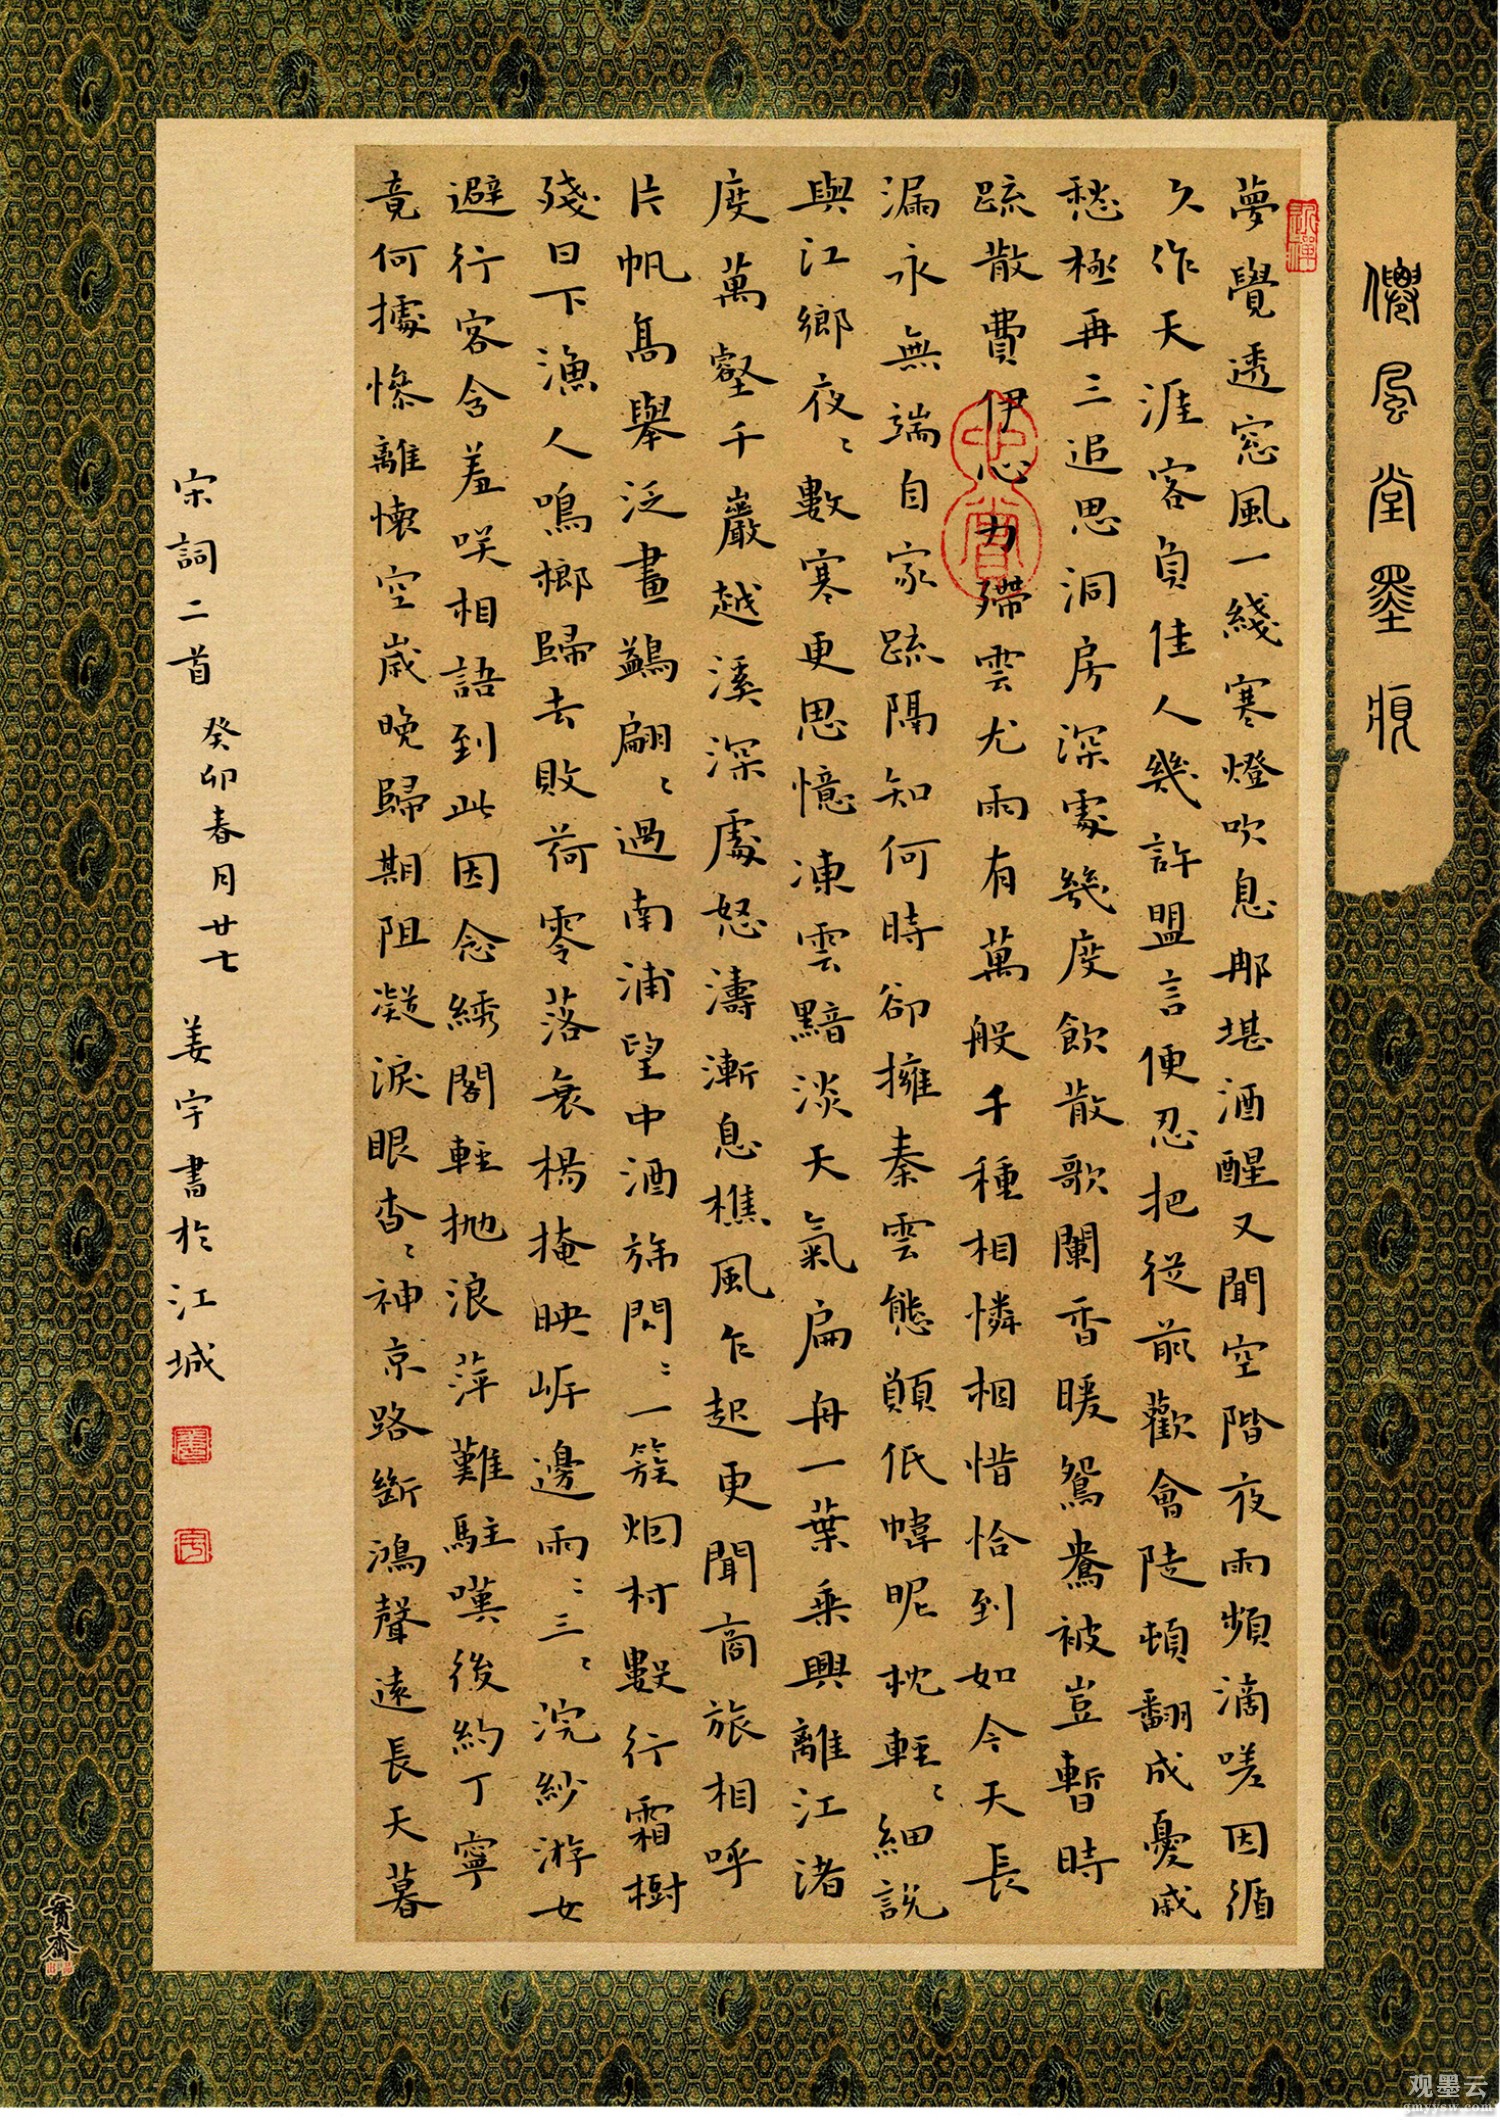 僊風堂墨痕
夢覺透窓風一綫寒燈吹息那堪酒醒又聞空階夜雨頻滴嗟因循
久作天涯客負佳人幾許盟言便忍把從前歡會陡頓翻成憂戚
愁極再三追思洞房深處幾度飲散歌闌香暖鴛鴦被豈暫時
疏散費伊心力殢雲尤雨有萬般千種相憐相惜恰到如今天長
漏永無端自家疏隔知何時卻擁秦雲態願低幃昵枕輕〻細說
與江鄉夜〻數寒更思憶凍雲黯淡天氣扁舟一葉乘興離江渚
度萬壑千巖越溪深處怒濤漸息樵風乍起更聞商旅相呼
片帆高舉泛畫鷁翩〻過南浦望中酒旆閃〻一簇烟村數行霜樹
殘日下漁人鳴榔歸去敗荷零落衰楊掩映岸邊兩〻三〻浣紗游女
避行客含羞咲相語到此因念綉閣輕拋浪萍難駐嘆後約丁寧
竟何據慘離懷空歲晚歸期阻凝淚眼杳〻神京路斷鴻聲遠長天暮
宋詞二首 癸卯春月廿七 姜宇書於江城
寶齋
观墨云
gmyysw.com